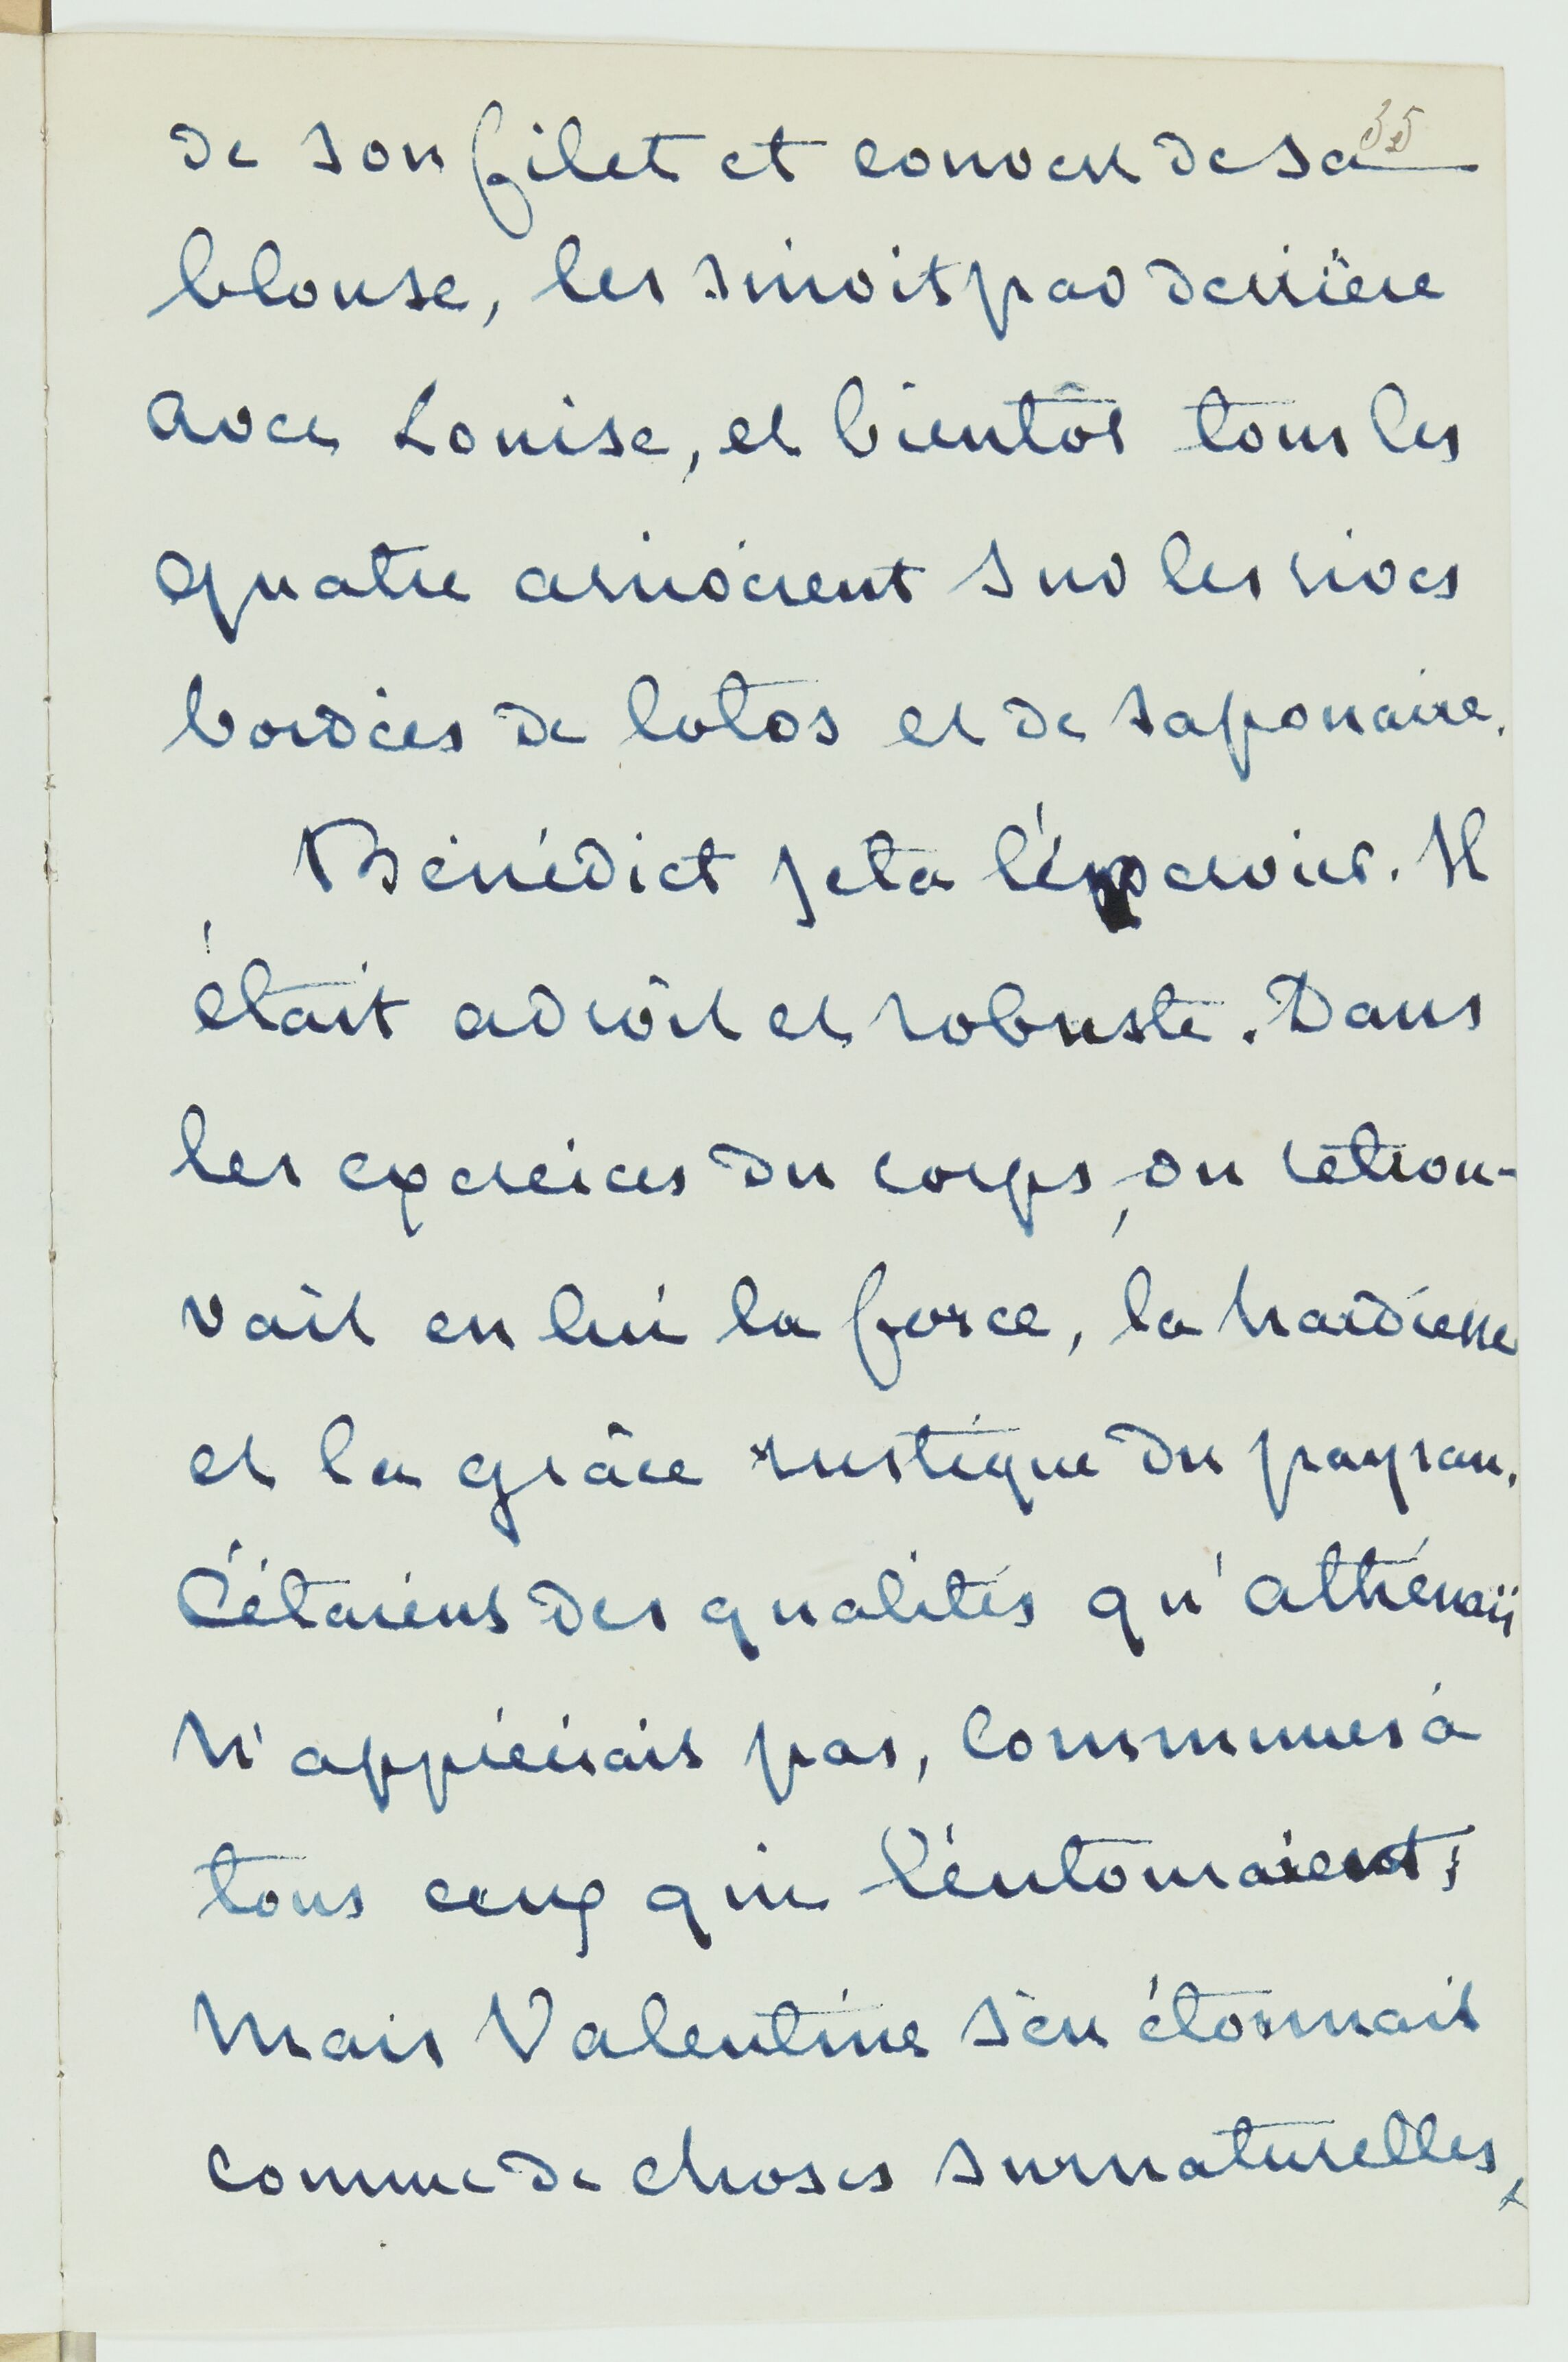 35
de son filet et couvert de sa
blouse, les suivit par derrière
avec Louise, et bientôt tous les
quatre arrivèrent sur les rives
bordées de lotos et de saponaire.
Bénédict jeta l'épervier. Il
était adroit et robuste. Dans
les exercices du corps, on retrou-
vait en lui la force, la hardiesse
et la grâce rustique du paysan.
C'étaient des qualités qu'Athénaïs
n'appréciait pas, communes à
tous ceux qui l'entouraient ;
mais Valentine s'en étonnait
comme de choses surnaturelles,